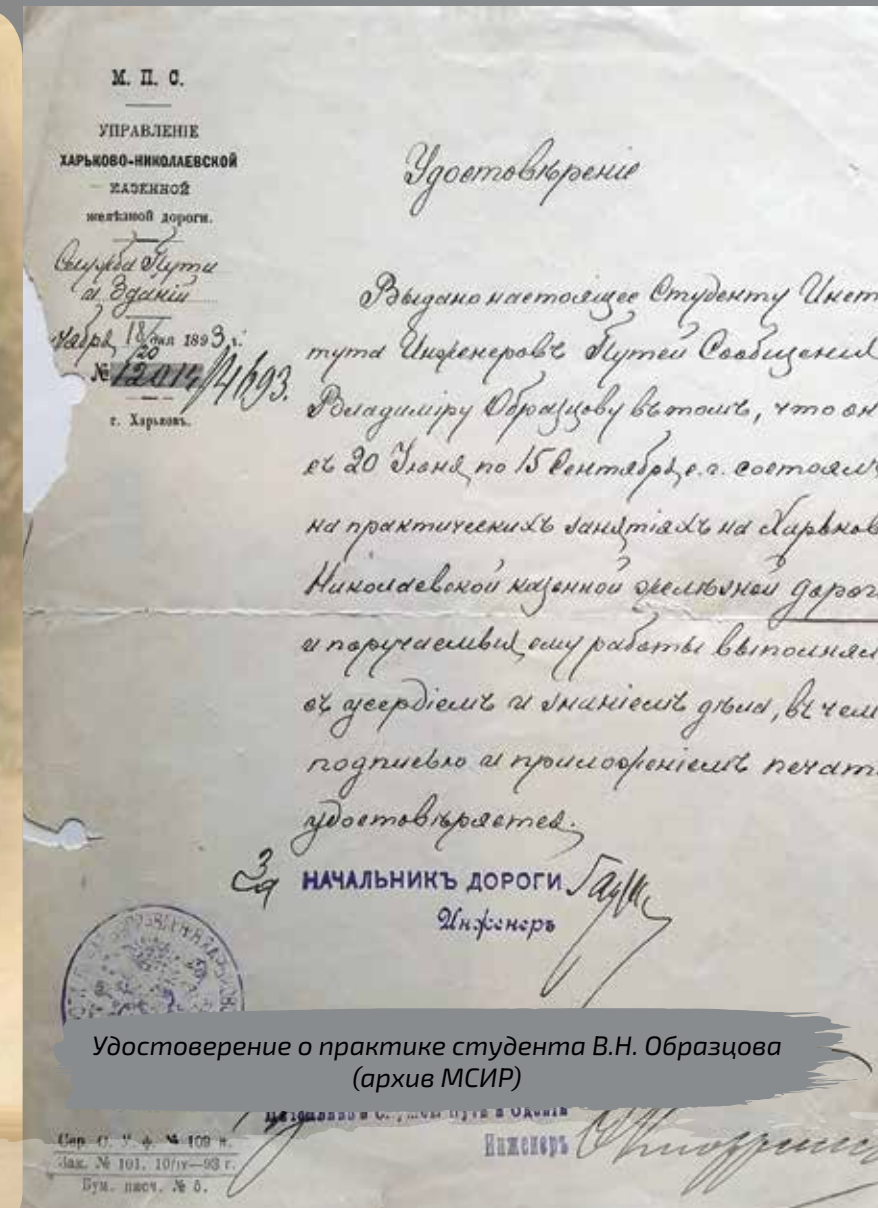 М. П. С.
УПРАВЛЕНІЕ
ХАРЬКОВО-НИКОЛАЕВСКОЙ
КАЗЕННОЙ
желѣзной дороги.
Служба Пути
и Зданій
18/20 дня 1893 г.
№ 12014/41693.
г. Харьковъ.
Удостовѣреніе
Выдано настоящее Студенту Инсти
тута Инженеровъ Путей Сообщенія
Владиміру Образцову въ томъ, что он
съ 20 Іюня по 15 Сентября с.г. состоялъ
на практическихъ занятіяхъ на Харьков
Николаевской казенной желѣзной дорог
и поручаемыя ему работы выполнял
съ усердіемъ и знаніемъ дѣла, въ чем
подписью и приложеніемъ печати
удостовѣряется.
За НАЧАЛЬНИКЪ ДОРОГИ
Инженеръ
Удостоверение о практике студента В.Н. Образцова
(архив МСИР)
Инженеръ
№ 109 н.
Зак. № 101. 10/IV—93 г.
Бум. писч. № 5.